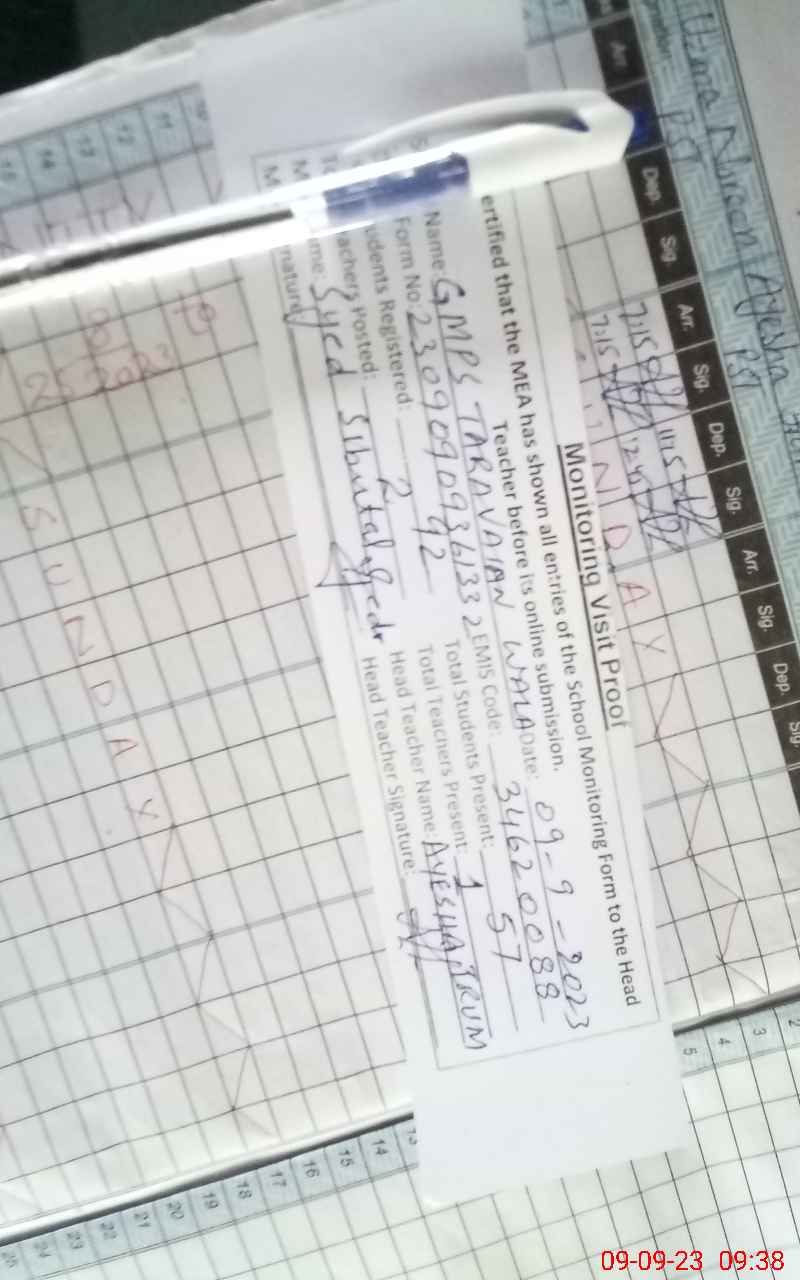 Monitoring Visit Proof
ertified that the MEA has shown all entries of the School Monitoring Form to the Head
Teacher before its online submission.
Name: GMPS TARAVAIAN WALA Date: 09-9-2023
Form No: 2309090936133 2 EMIS Code: 34620088
dents Registered: 92 Total Students Present: 57
achers Posted: 2 Total Teachers Present: 1
me: Syed Head Teacher Name: AYESHA
nature Head Teacher Signature:
Ayesha
PST
PST
Arr. Dep. Sig. Arr. Sig. Dep. Sig. Arr. Sig. Dep. Sig.
7:15 11:15
7:15 12:45
SUNDAY
SUNDAY
25 2023
11
12
13
14
15
2
3
4
5
13
14
15
16
17
18
19
20
21
22
23
24
25
09-09-23 09:38